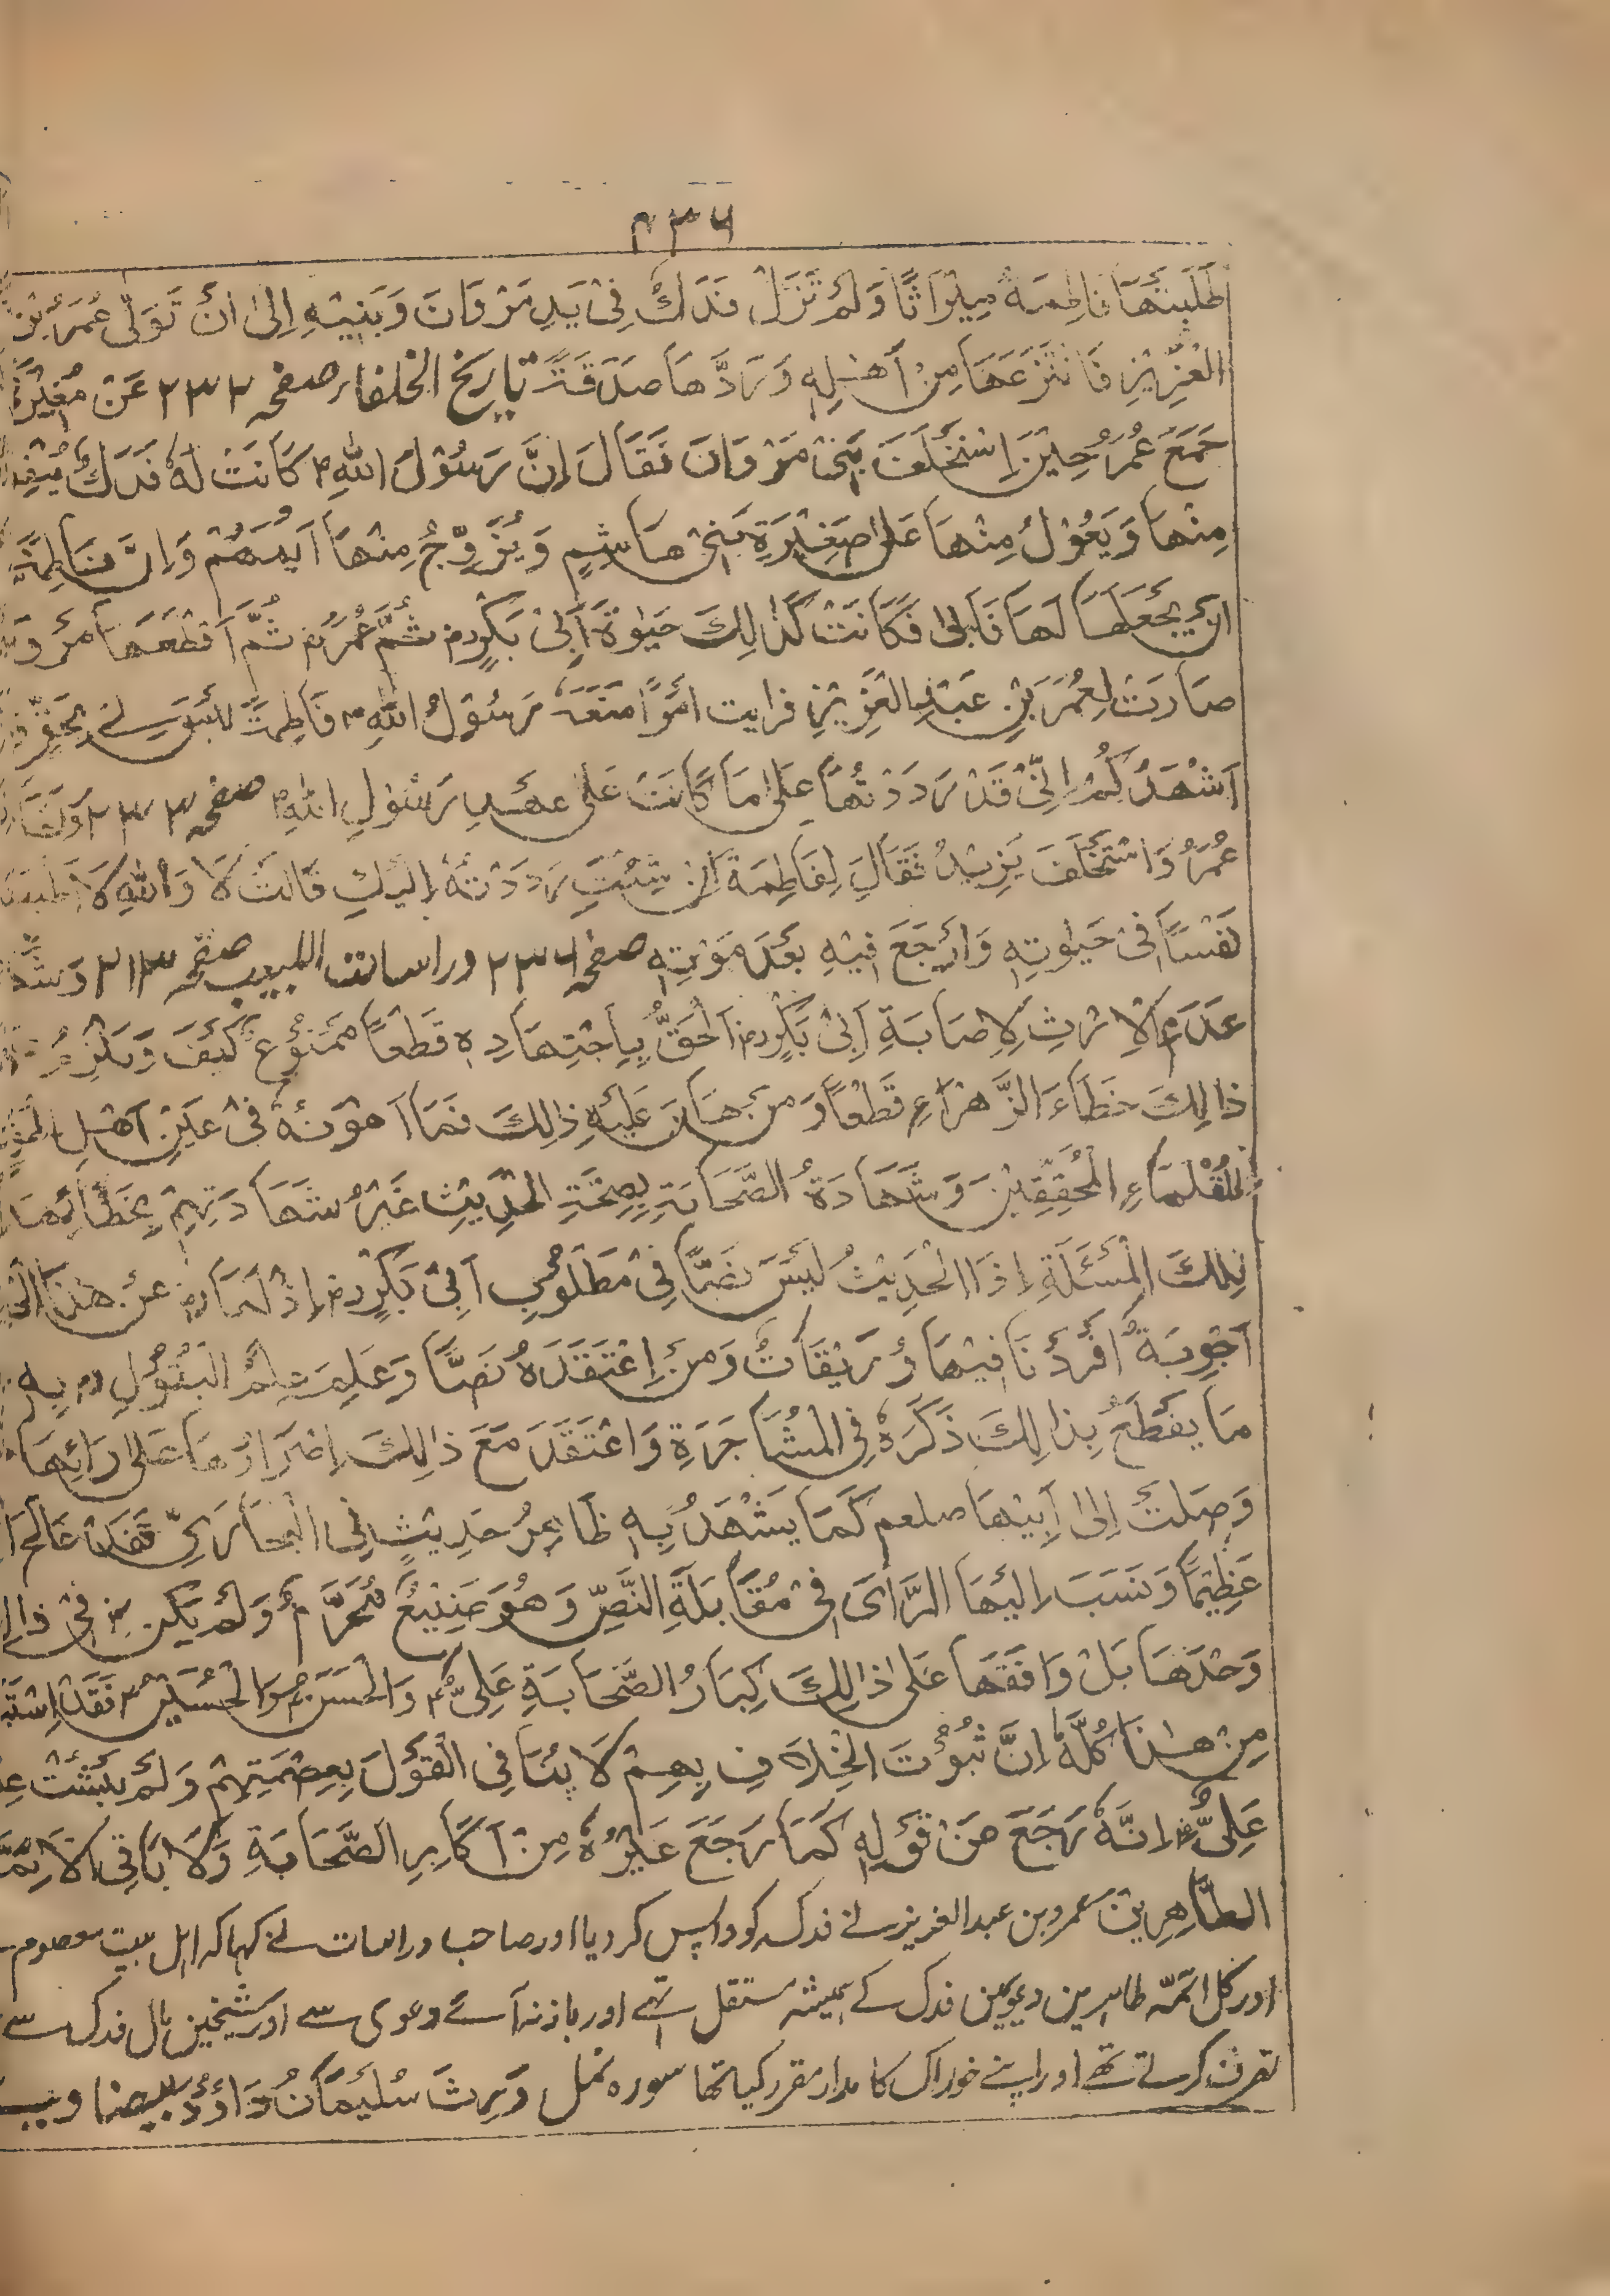 ۲۳۶
طَلَبَتْهَا فَاطِمَةُ مِيْرَاثًا وَلَمْ تَزَلْ فَدَكُ فِیْ يَدِ مَرْوَانَ وَبَنِيْهِ اِلٰى اَنْ تَوَلّٰى عُمَرُ بْنُ
الْعَزِيْزِ فَانْتَزَعَهَا مِنْ اَهْلِهٖ وَرَدَّهَا صَدَقَةً تاریخ الخلفار صفحہ ۲۳۲ عَنْ مُغِيْرَةَ
جَمَعَ عُمَرُ حِيْنَ اِسْتَخْلَفَ بَنِیْ مَرْوَانَ فَقَالَ اِنَّ رَسُوْلَ اللّٰهِ ؐ كَانَتْ لَهٗ فَدَكُ
مِنْهَا وَيَعُوْلُ مِنْهَا عَلٰى صَغِيْرَةِ بَنِیْ هَاشِمٍ وَيُزَوِّجُ مِنْهَا اَيِّمَهُمْ وَاِنَّ فَاطِمَةَ
اَنْ يَجْعَلَهَا لَهَا فَاَبٰى فَكَانَتْ كَذَالِكَ حَيٰوةَ اَبِیْ بَكْرٍ رض ثُمَّ عُمَرُ رض ثُمَّ اَقْطَعَهَا مَرْوَانُ
صَارَتْ لِعُمَرَ بْنِ عَبْدِ الْعَزِيْزِ فرایت اَمْرًا مَنَعَهٗ رَسُوْلُ اللّٰهِ ؐ فَاطِمَةَ لَيْسَ لِیْ بِحَقٍّ
اَشْهَدُكُمْ اِنِّیْ قَدْ رَدَدْتُهَا عَلٰى مَا كَانَتْ عَلٰى عَهْدِ رَسُوْلِ اللّٰهِ ؐ صفحہ ۲۳۳
عُمَرُ وَاسْتَخْلَفَ يَزِيْدُ فَقَالَ لِفَاطِمَةَ اِنْ شِئْتِ رَدَدْتُهٗ اِلَيْكِ قَالَتْ لَا وَاللّٰهِ لَا
نَفْسًا فِیْ حَيٰوتِهٖ وَارْجَعَ فِيْهِ بَعْدَ مَوْتِهٖ صفحہ ۲۳۶ دراسات اللبیب صفحہ ۲۱۳
عَدَمِ الْاِرْثِ لِاِصَابَةِ اَبِیْ بَكْرٍ رض اَلْحَقَّ بِاِجْتِهَادِهٖ قَطْعًا مَمْنُوْعٌ كَيْفَ وَيَلْزِمُ
ذَالِكَ خَطَاءَ الزَّهْرَاءِ قَطْعًا وَمَنْ هَانَ عَلَيْهِ ذَالِكَ فَمَا اَهْوَنَهٗ فِیْ عَيْنِ اَهْلِ
الْعُلَمَاءِ الْمُحَقِّقِيْنَ وَشَهَادَةُ الصَّحَابَةِ بِصِحَّةِ الْحَدِيْثِ غَيْرُ شَهَادَتِهِمْ بِخَطَائِهَا
تِلْكَ الْمَسْئَلَةِ اِذَا الْحَدِيْثُ لَيْسَ نَصًّا فِیْ مَطْلُوْبِ اَبِیْ بَكْرٍ رض اِذْ لَهَا رض عَنْ هٰذَا
اَجْوِبَةٌ اَفْرَدْنَا فِيْهَا وُرَيْقَاتٌ وَمَنْ اِعْتَقَدَهٗ نَصًّا وَعَلِمَ عِلْمَ الْبَتُوْلِ رض بِهٖ
مَا يَقْطَعُ بِذَالِكَ ذَكَرَهٗ فِی الْمُشَاجَرَةِ وَاعْتَقَدَ مَعَ ذَالِكَ اِصْرَارُهَا عَلٰى رَائِهَا
وَصَلَتْ اِلٰى اَبِيْهَا صلعم كَمَا يَشْهَدُ بِهٖ ظَاهِرُ حَدِيْثٍ فِی الْبُخَارِیِّ فَقَدْ
عَظِيْمًا وَنَسَبَ اِلَيْهَا الرَّاىَ فِیْ مُقَابَلَةِ النَّصِّ وَهُوَ شَنِيْعٌ مُحَرَّمٌ وَلَمْ يَكُنْ فِیْ
وَحْدَهَا بَلْ وَافَقَهَا عَلٰى ذَالِكَ كِبَارُ الصَّحَابَةِ عَلِیٌّ ؑ وَالْحَسَنُ ؑ وَالْحُسَيْنُ ؑ فَقَدْ
مِنْ هٰذَا كُلِّهٖ اِنَّ ثُبُوْتَ الْخِلَافِ بِهِمْ لَا يُنَافِی الْقَوْلَ بِعِصْمَتِهِمْ وَلَمْ يَثْبُتْ
عَلِیٌّ ؑ اِنَّهٗ رَجَعَ عَنْ قَوْلِهٖ كَمَا رَجَعَ غَيْرُهٗ مِنْ اَكَابِرِ الصَّحَابَةِ وَلَا بَاقِی الْاَئِمَّةِ
الطَّاهِرِيْنَ عمرو بن عبد العزیز نے فدک کو واپس کر دیا اور صاحب دراسات نے کہا کہ اہل بیت معصوم
اور کل ائمّہ طاہرین دعویٰ فدک کے ہمیشہ مستقل تہے اور باز نہ آئے دعوی سے اور شیخین مال فدک سے
تصرف کرتے تھے اور اپنے خوراک کا مدار مقرر کیا تھا سورہ نمل وَرِثَ سُلَيْمَانُ دَاوٗدَ بیضاوی